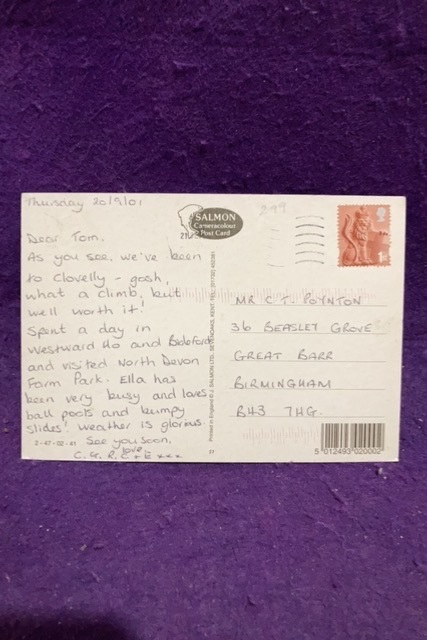 Thursday 20/9/01
Dear Tom.
As you see, we've been
to Clovelly - gosh,
what a climb, but
well worth it!
Spent a day in
Westward Ho and Bideford
and visited North Devon
Farm Park. Ella has
been very busy and loves
ball pools and bumpy
slides! Weather is glorious.
See you soon,
love
C. G. R. C + E xxx
2-47-02-41
SALMON
Cameracolour
Post Card
1st
MR C T. POYNTON
36 BEASLEY GROVE
GREAT BARR
BIRMINGHAM
B43 7HG.
27
5 012493 020002